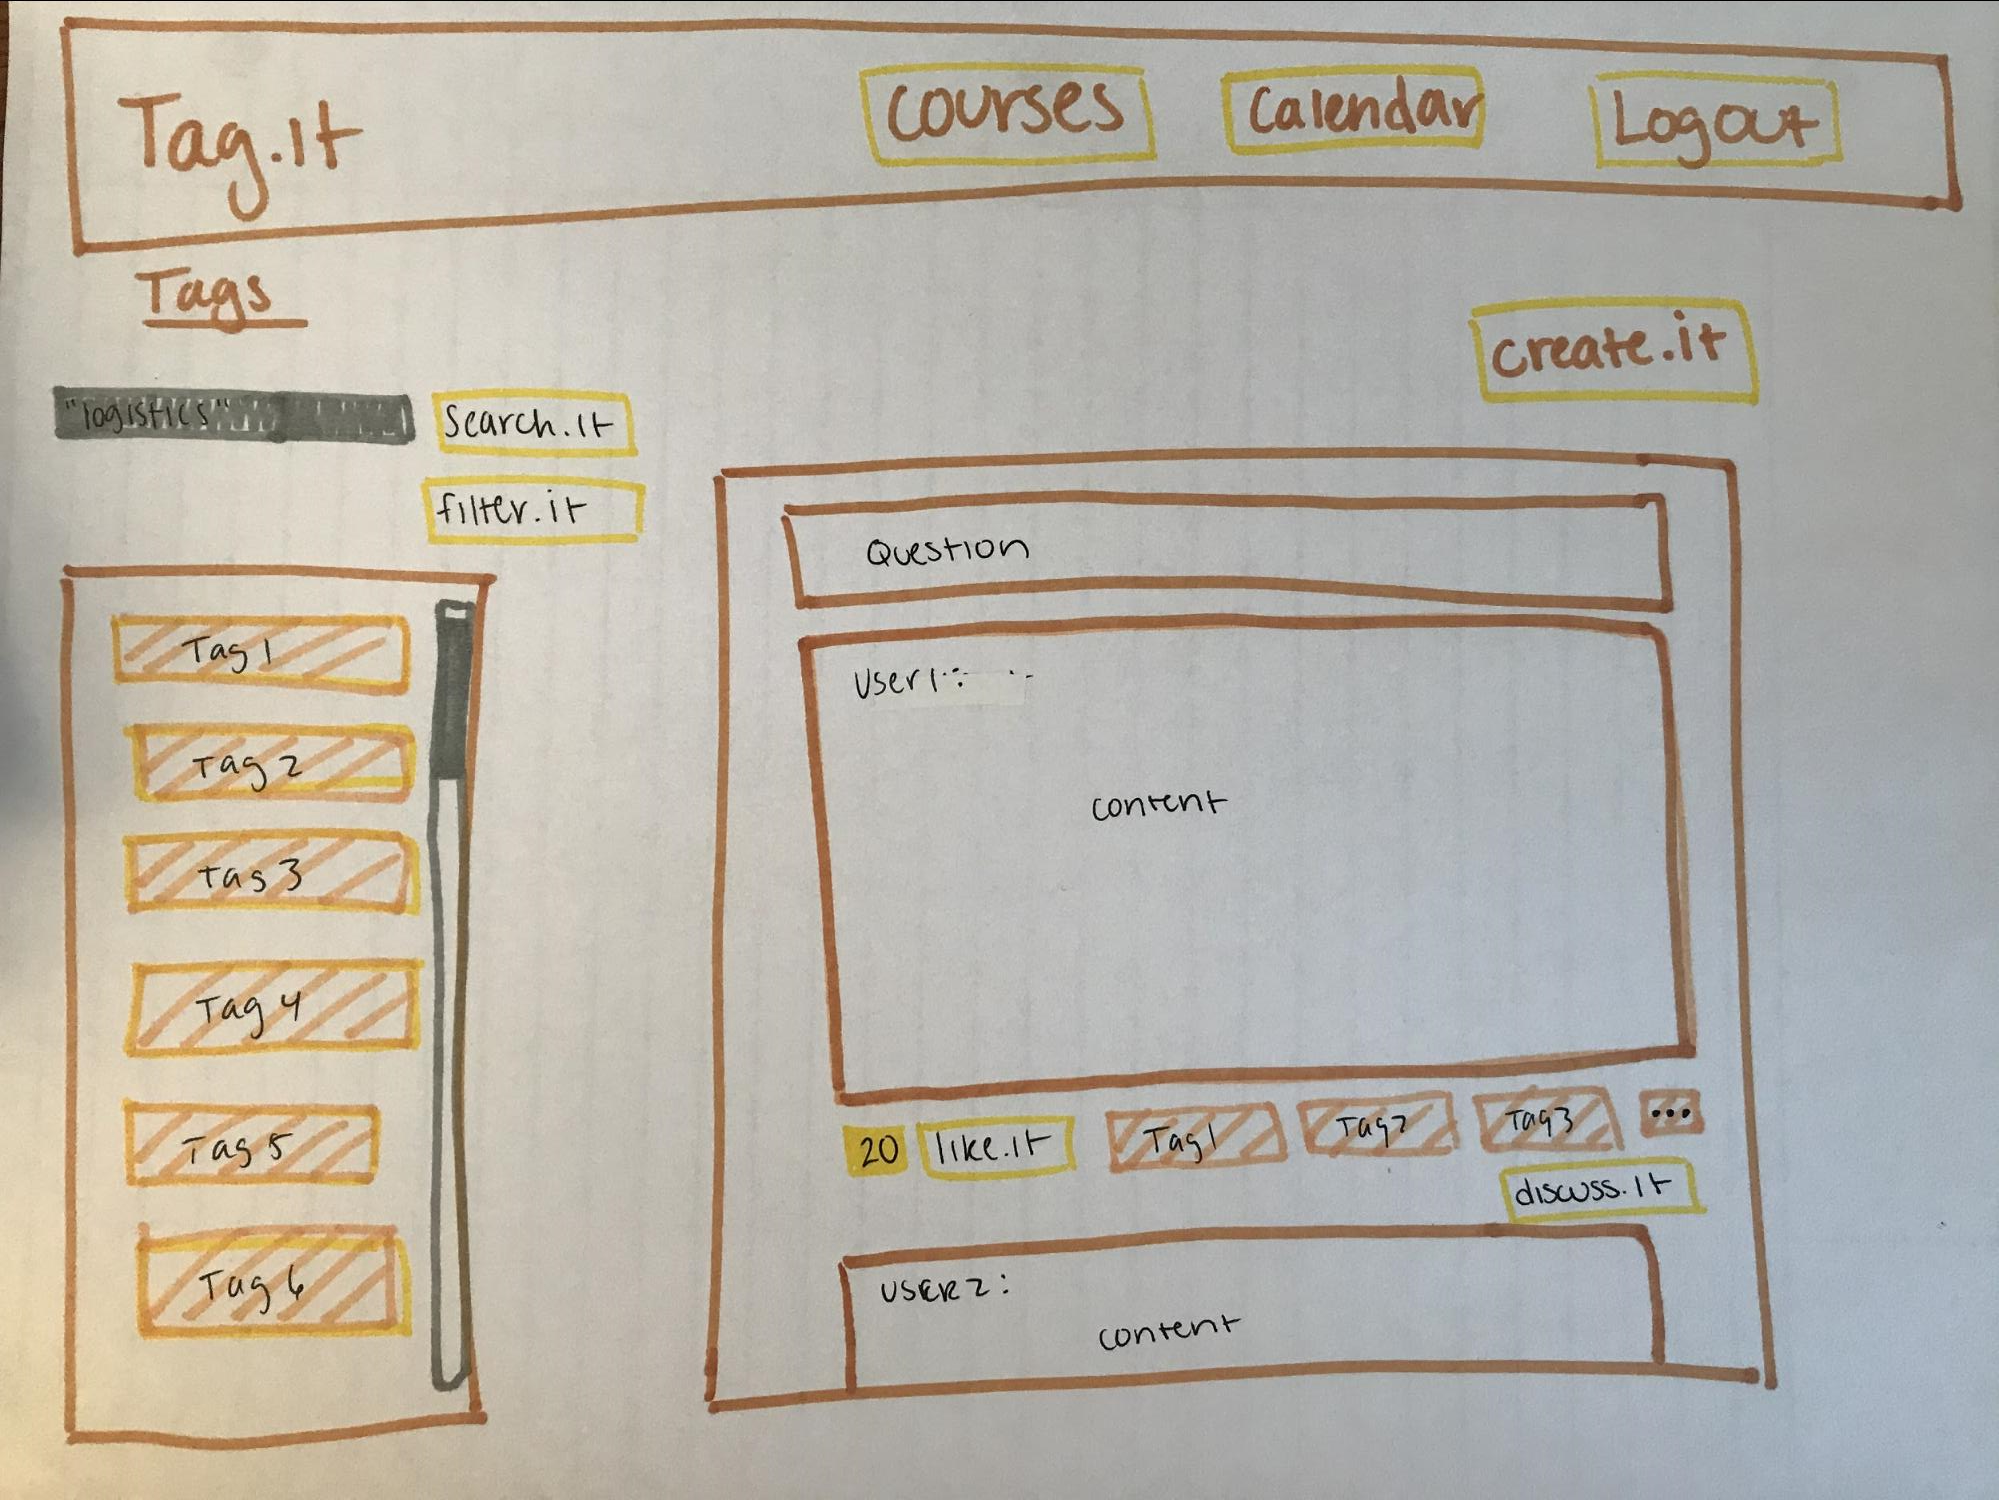 Tag.it
courses
calendar
Logout
Tags
create.it
"logistics"
search.it
filter.it
Tag 1
Tag 2
Tag 3
Tag 4
Tag 5
Tag 6
Question
User1:
content
20
like.it
Tag1
Tag2
Tag3
...
discuss.it
USER2:
content